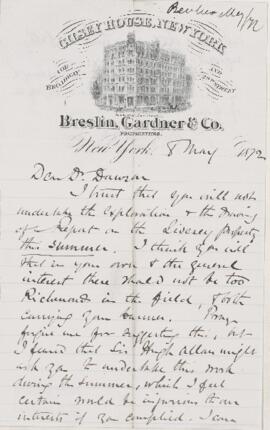 GILSEY HOUSE, NEW YORK
BROADWAY
AND
AND
29TH STREET
Breslin, Gardner & Co.
PROPRIETORS.
New York, 8 May 1872
Dear Dr. Dawson
I trust that you will not
undertake the exploration & the drawing
of report on the property
this Summer. I think you will
that in your own & the general
interest there should not be two
Richmonds in the field, & both
carrying your banner. Pray
forgive me for suggesting this, but
I feared that Sir Hugh Allan might
ask you to undertake this work
during the summer, which I feel
certain would be injurious to our
interests if you complied. I can